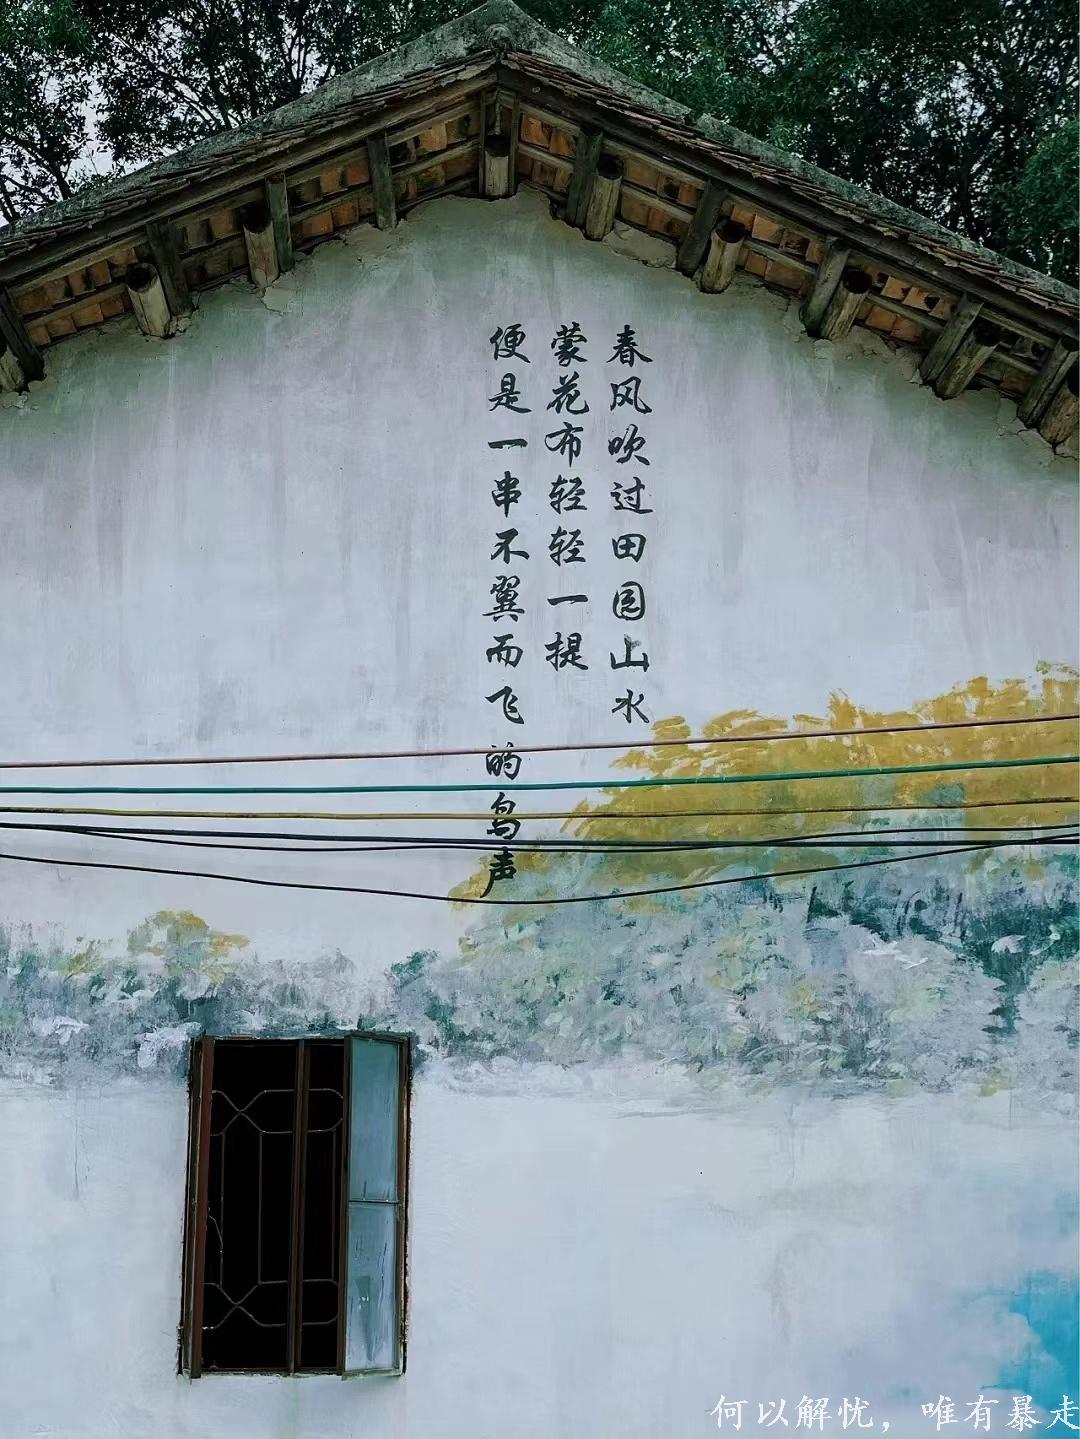 春风吹过田园山水
蒙花布轻轻一提
便是一串不翼而飞的鸟声
何以解忧，唯有暴走